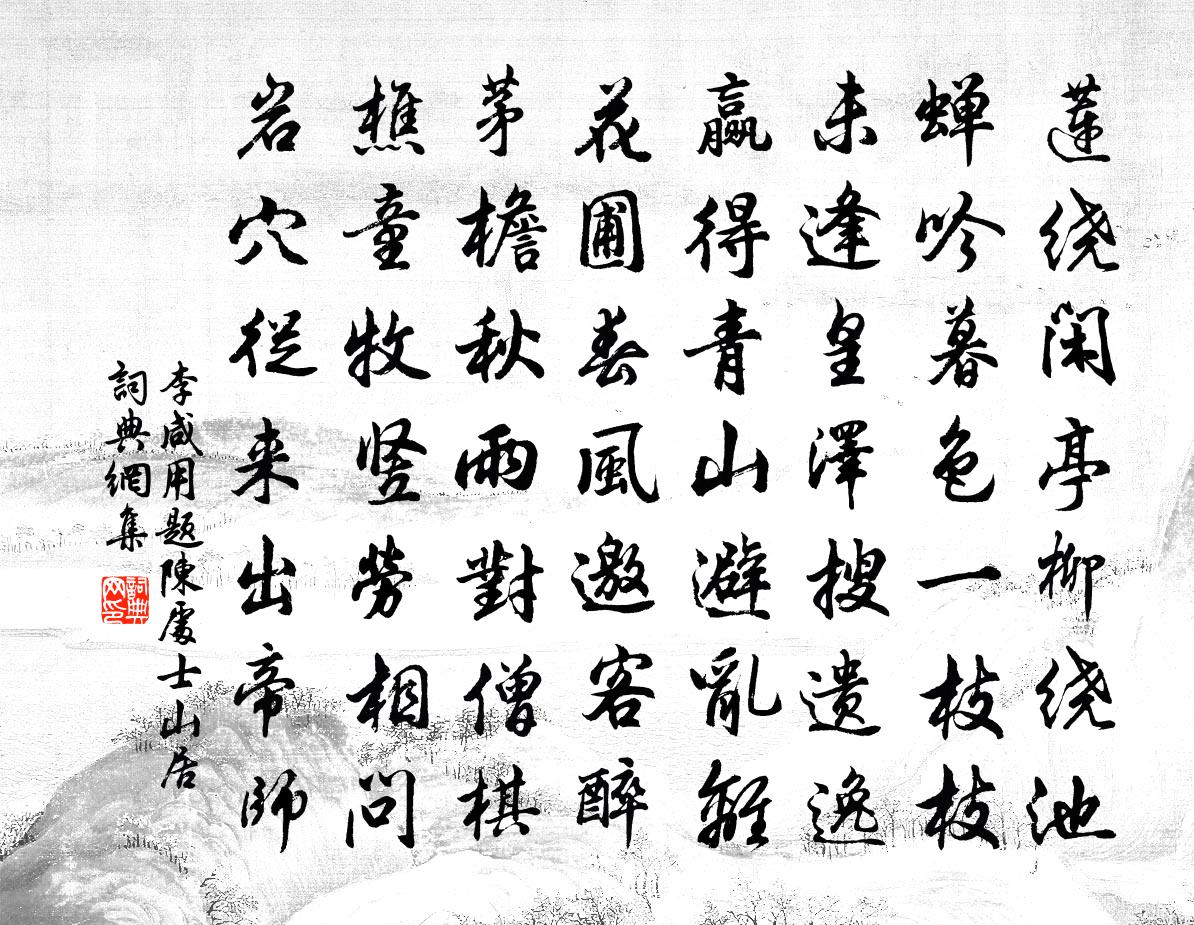 蓮绕闲亭柳绕池
蝉吟暮色一枝枝
未逢皇澤搜遗逸
赢得青山避亂離
花圃春風邀客醉
茅檐秋雨對僧棋
樵童牧竖勞相問
岩穴從来出帝師
李咸用题陳處士山居
詞典網集
詞典网印